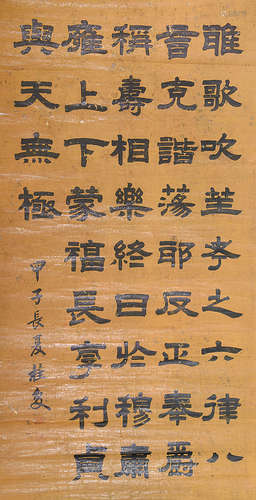 雅歌吹笙考之六律八
音克諧蕩耶反正奉爵
稱壽相樂終日於穆肅
雍上下蒙福長享利貞
與天無極
甲子長夏桂